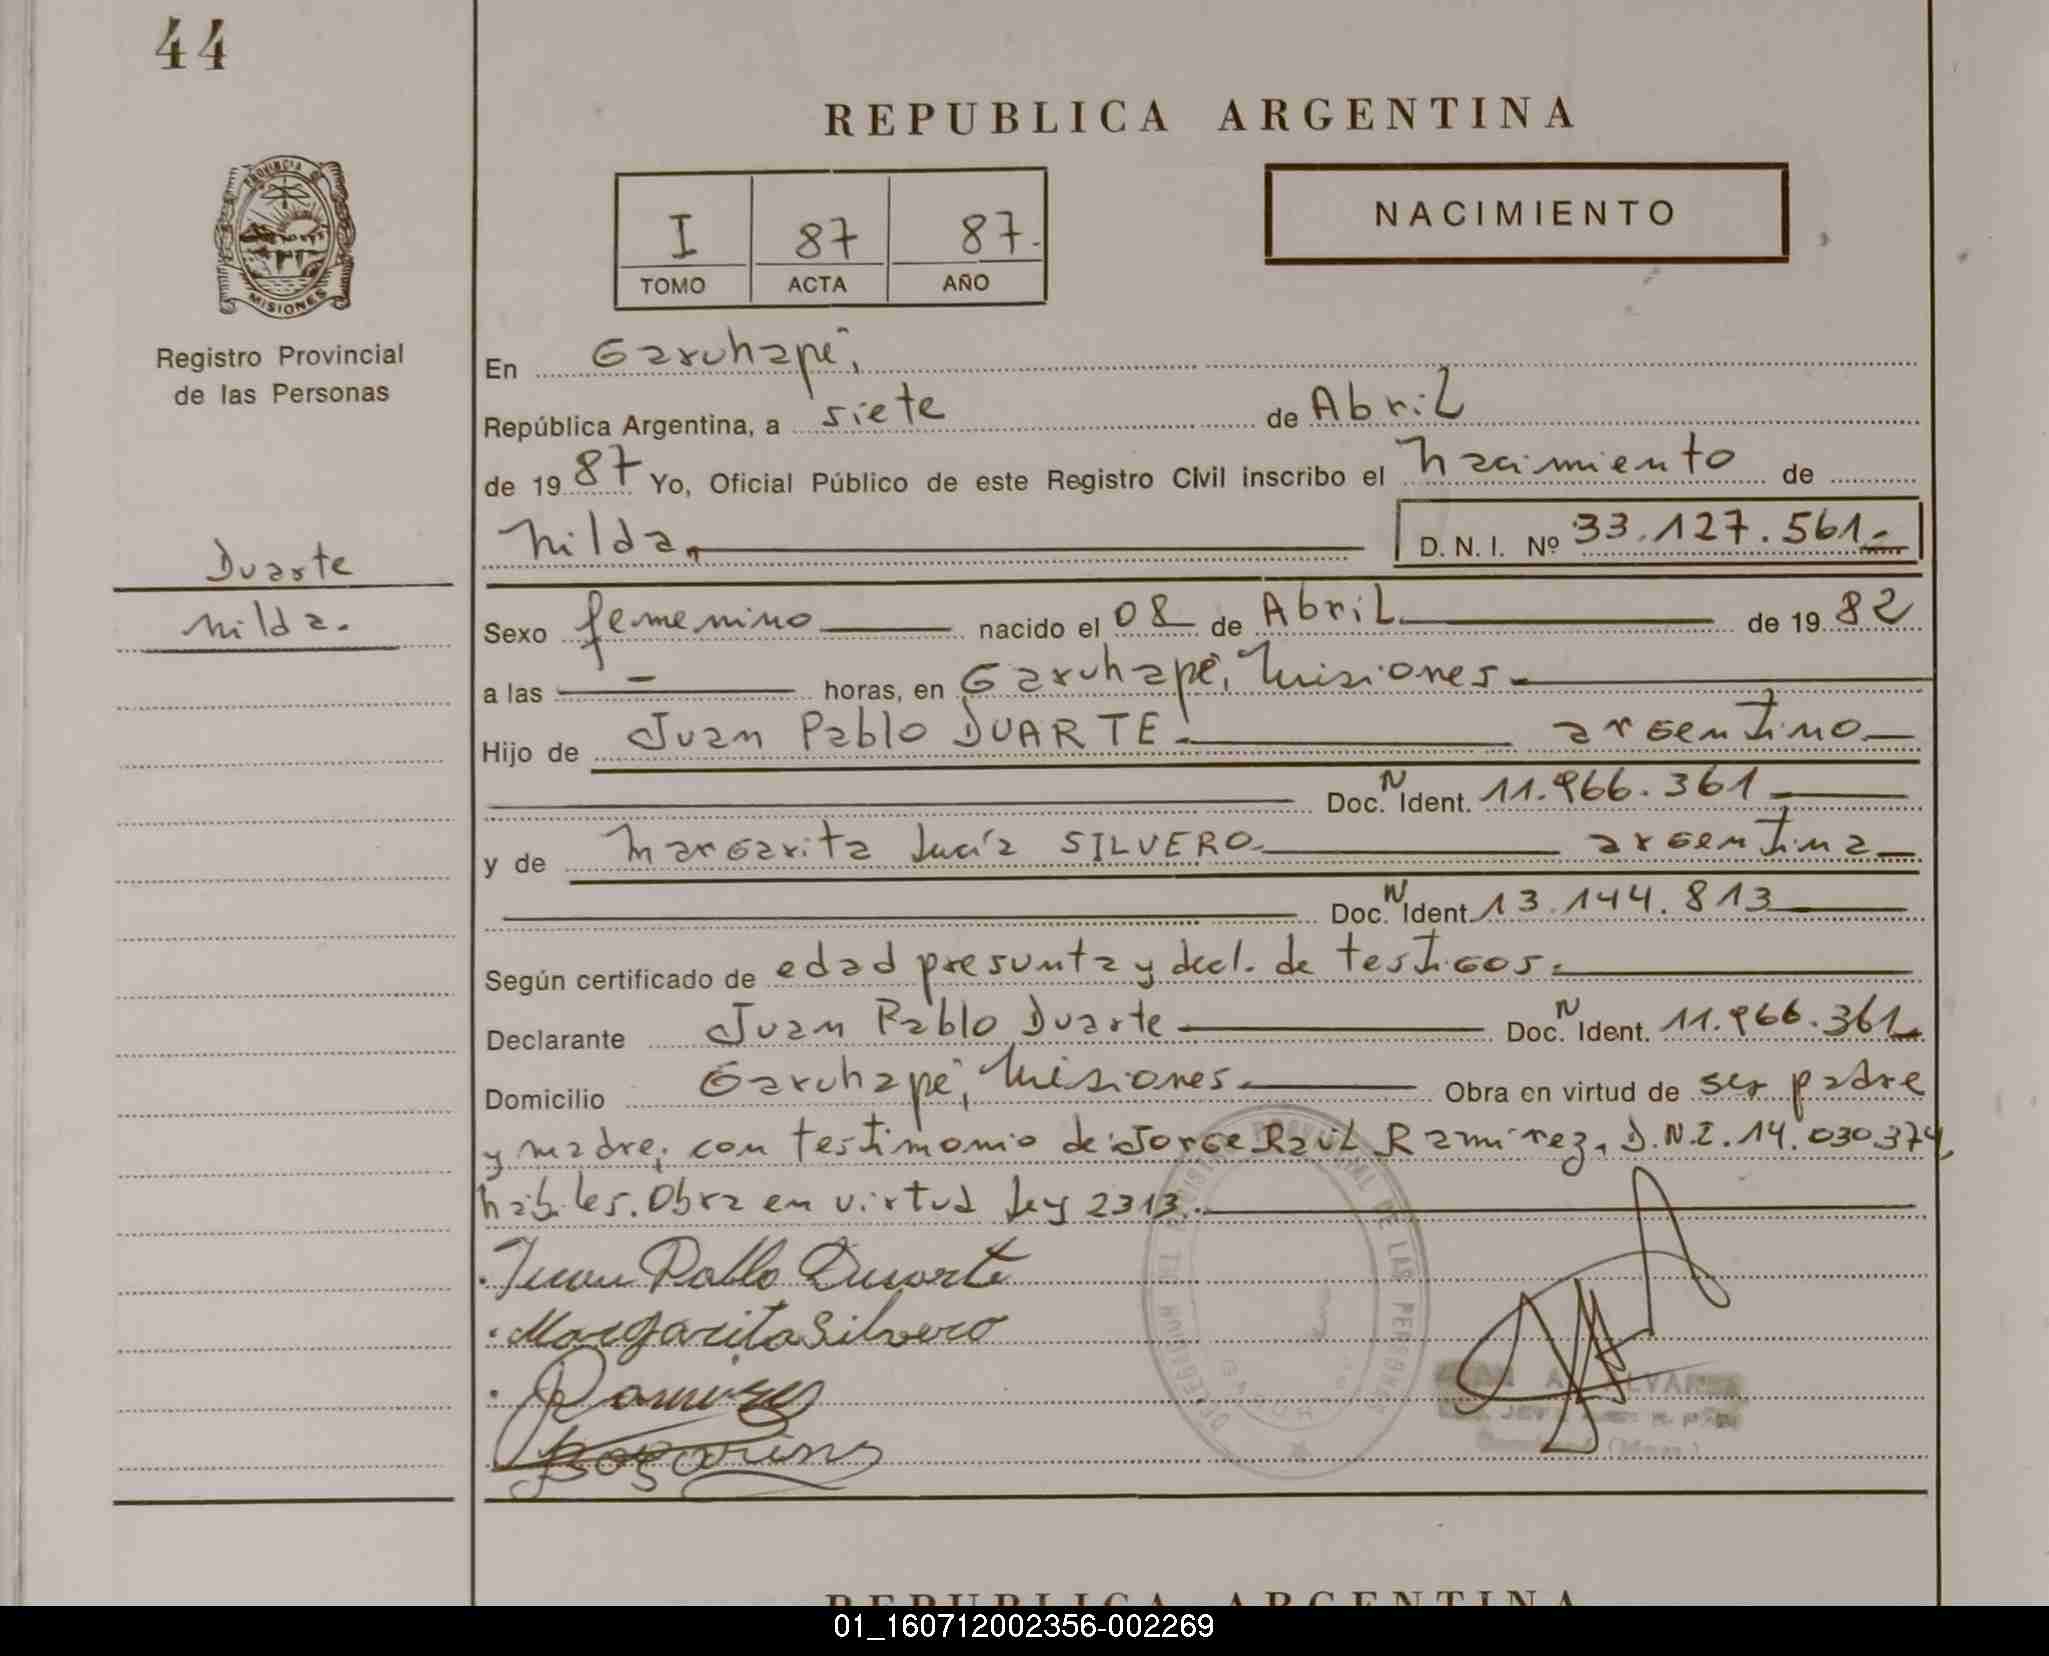 44
REPUBLICA ARGENTINA
NACIMIENTO
I 87 87.
TOMO ACTA AÑO
PROVINCIA D
MISIONES
Registro Provincial
de las Personas
Duarte
Nilda.
En Garuhapé,
República Argentina, a siete de Abril
de 1987 Yo, Oficial Público de este Registro Civil inscribo el nacimiento de
Nilda. D. N. I. Nº 33.127.561.-
Sexo femenino nacido el 08 de Abril de 1982
a las - horas, en Garuhapé, Misiones.
Hijo de Juan Pablo DUARTE. argentino
Doc. N Ident. 11.966.361
y de Margarita Lucía SILVERO. argentina
Doc. N Ident. 13.144.813
Según certificado de edad presunta y decl. de testigos.
Declarante Juan Pablo Duarte Doc. N Ident. 11.966.361
Domicilio Garuhapé, Misiones. Obra en virtud de ser padre
y madre; con testimonio de: Jorge Raúl Ramirez, D.N.I. 14.030.374,
hábiles. Obra en virtud Ley 2313.
Juan Pablo Duarte
Margarita Silvero
Ramirez
DE LAS PERSONAS
REPUBLICA ARGENTINA
01_160712002356-002269